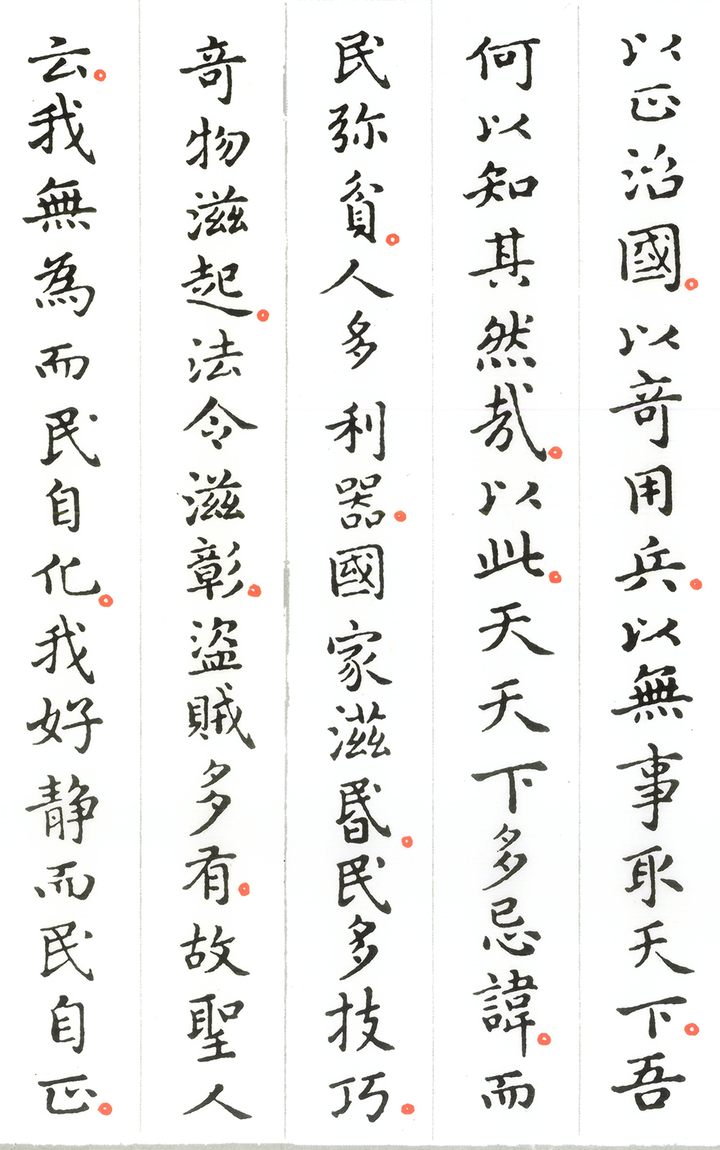 以正治國。以奇用兵。以無事取天下。吾
何以知其然哉。以此。天天下多忌諱。而
民弥貧。人多利器。國家滋昬。民多技巧。
奇物滋起。法令滋彰。盜賊多有。故聖人
云。我無為而民自化。我好静而民自正。